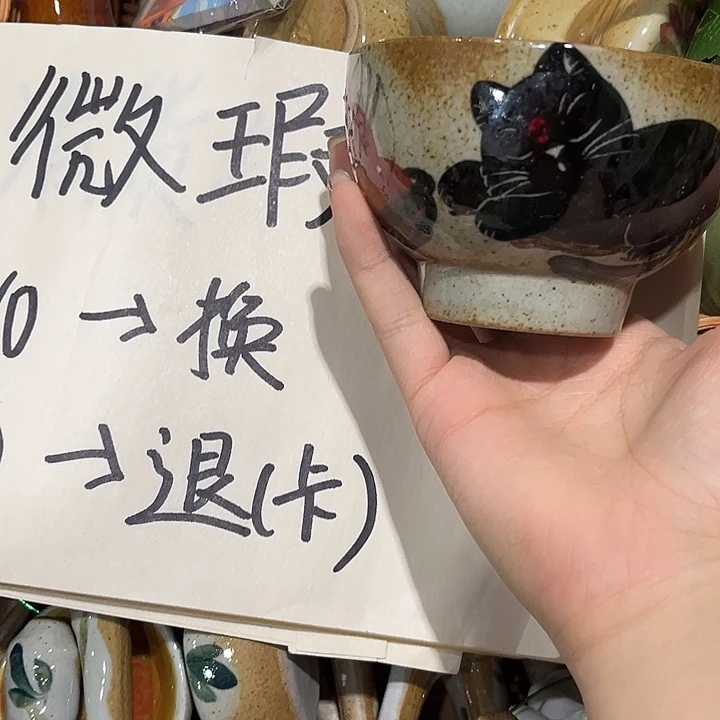 微瑕
0 → 换
→ 退(卡)